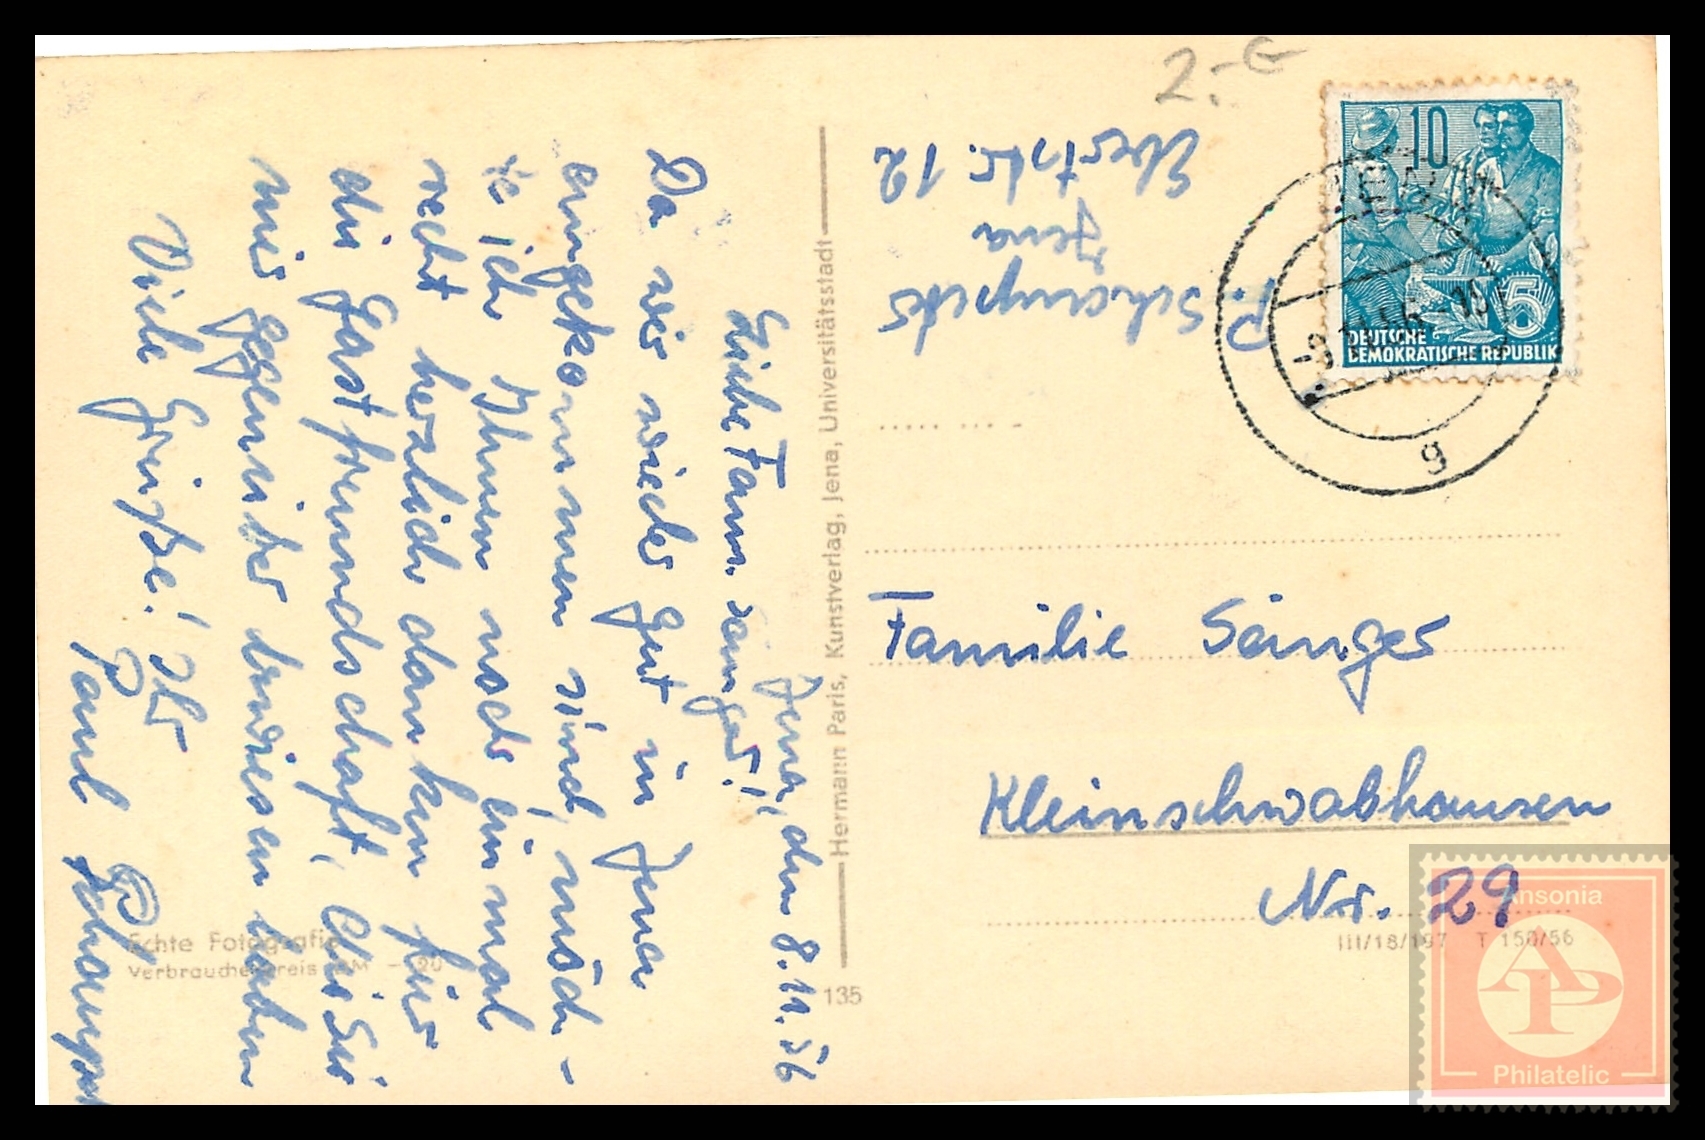 Jena, den 8.11.56
Liebe Fam. Sänger!
Da wir wieder gut in Jena
angekommen sind, möch-
te ich Ihnen noch einmal
recht herzlich danken für
die Gastfreundschaft, die Sie
mir gegenüber bewiesen haben
Viele Grüße! Ihr
Paul
Echte Fotografie
Verbraucherpreis DM -.20
Hermann Paris, Kunstverlag, Jena, Universitätsstadt
135
2.-€
P.
Jena
Ebertstr. 12
10
DEUTSCHE
DEMOKRATISCHE REPUBLIK
5
JENA
g
Familie Sänger
Kleinschwabhausen
Nr. 29
III/18/197 T 150/56
Ansonia
AP
Philatelic